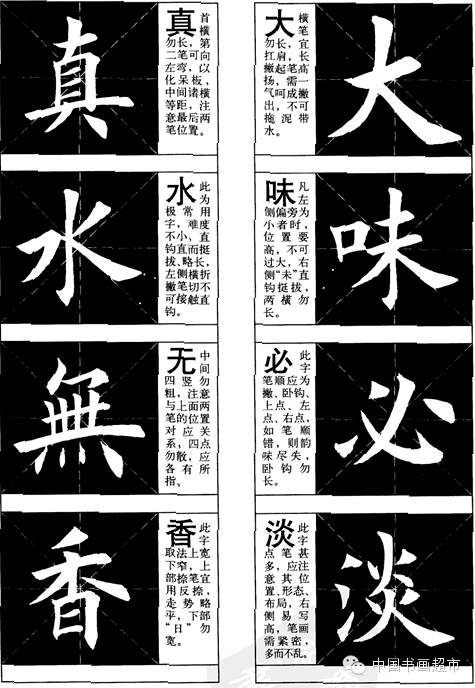 真
真
首横
勿长，第
二笔可向
左弯，以
化呆板，
中间诸横
等距，注
意最后两
笔位置。
水
水
此为
极常用
字，难度
不小，直
钩直而挺
拔、略长，
左侧横折
撇笔切不
可接触直
钩。
無
无
中间
四竖勿
粗，注意
与上面两
笔的位置
对应关
系，四点
勿散，应
各有所
指。
香
香
此字
取法上宽
下窄，上
部捺笔宜
用反捺，
走势略
平，下部
“日”勿
宽。
大
横笔
勿长，宜
扛肩，长
撇起笔高
扬，需一
气呵成撇
出，不可
拖泥带
水。
大
味
凡左
侧偏旁为
小者时，
位置要
高，不可
过大，右
侧“未”直
钩挺拔，
两横勿
长。
味
必
此字
笔顺应为
撇、卧钩、
上点、左
点、右点，
如笔顺
错，则韵
味尽失，
卧钩勿
长。
必
淡
此字
点笔甚
多，应注
意其位
置、形态、
布局，右
侧易写
高，笔画
需紧密，
多而不乱。
淡
中国书画超市